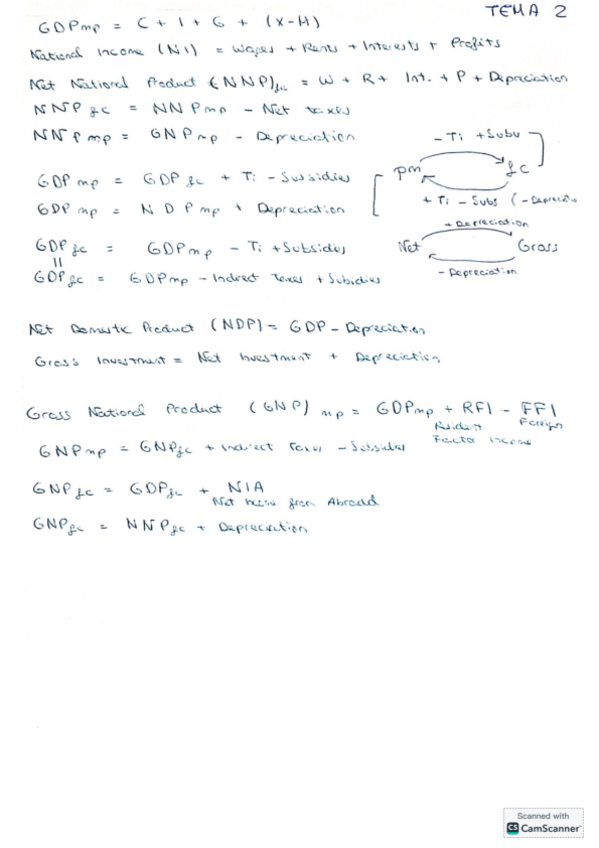 TEMA 2
GDPmp = C + I + G + (X-M)
National Income (NI) = Wages + Rents + Interests + Profits
Net National Product (NNP)fc = W + R + Int. + P + Depreciation
NNPfc = NNPmp - Net taxes
NNPmp = GNPmp - Depreciation
- Ti + Subu
pm fc
+ Ti - Subs (- Depreciatio
GDPmp = GDPfc + Ti - Sussidies
GDPmp = NDPmp + Depreciation
+ Depreciation
Net Gross
- Depreciation
GDPfc = GDPmp - Ti + Subsides
||
GDPfc = GDPmp - Indirect Taxes + Subidies
Net Domestic Product (NDP) = GDP - Depreciation
Gross Investment = Net Investment + Depreciation
Gross National Product (GNP) mp = GDPmp + RFI - FFI
Resident Foreign
Factor Income
GNPmp = GNPfc + Indirect Taxes - Subsides
GNPfc = GDPfc + NIA
Net Income from Abroad
GNPfc = NNPfc + Depreciation
Scanned with
CS CamScanner